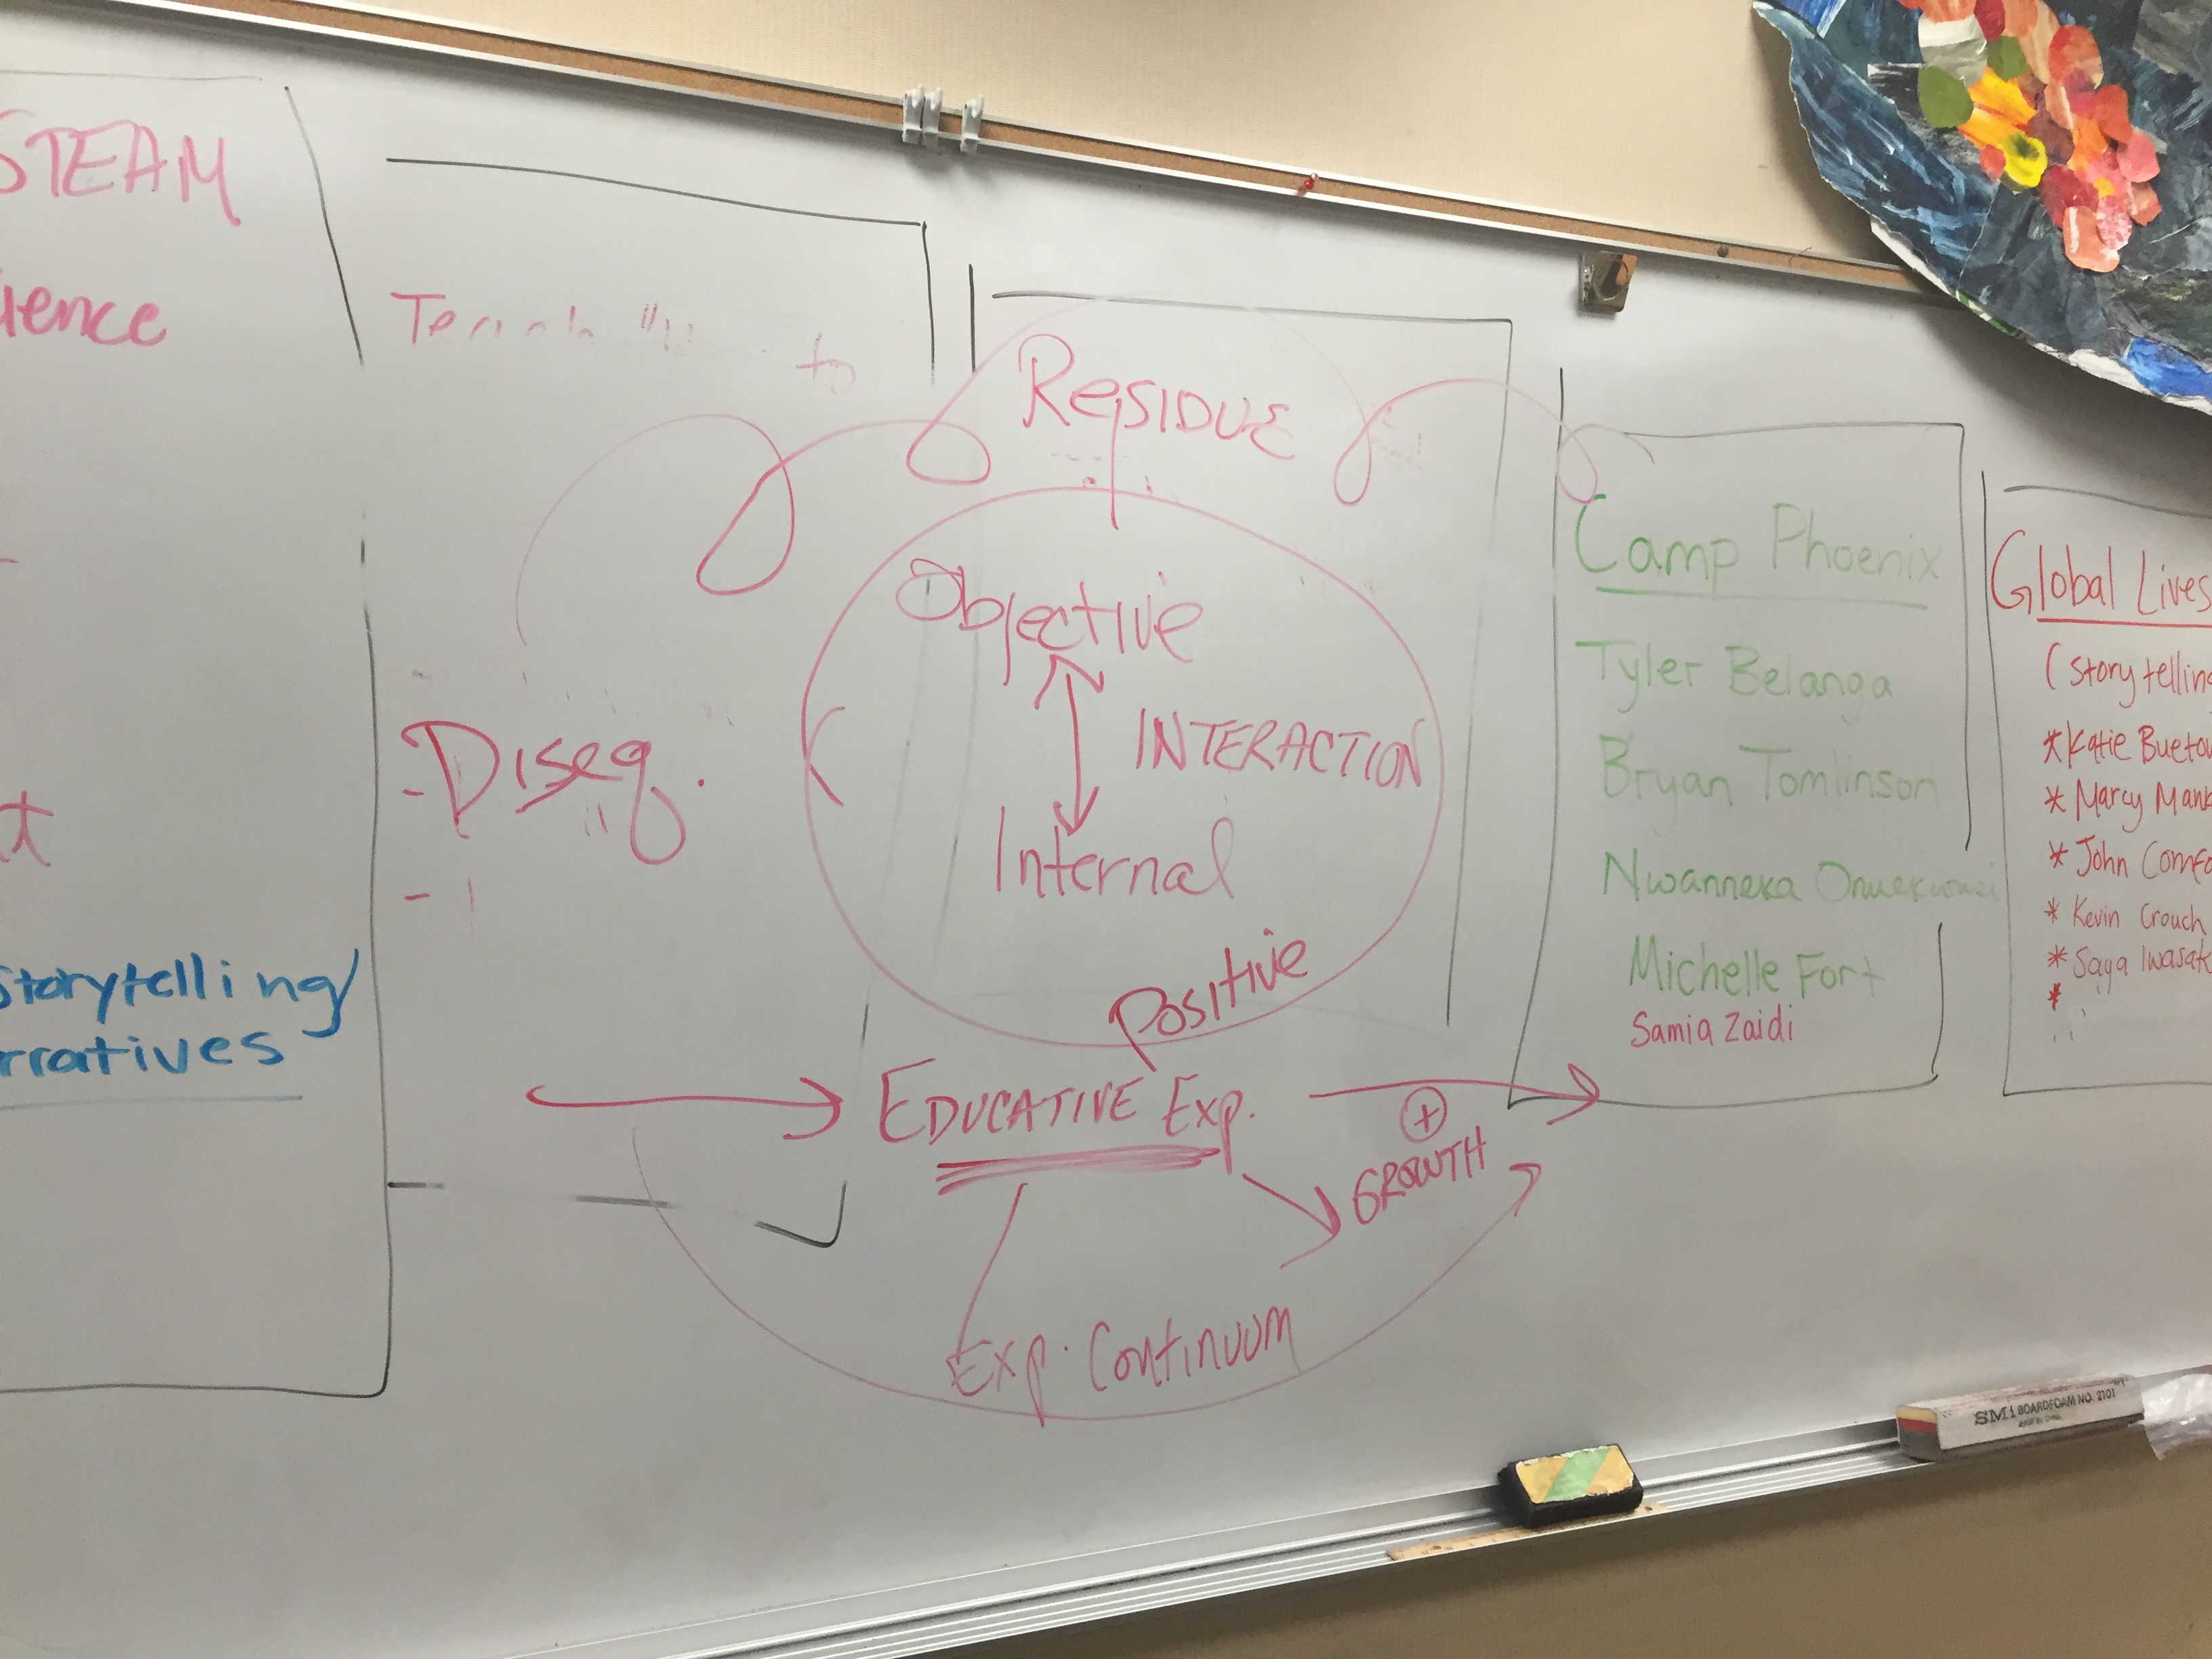 STEAM
ience
Storytelling/
rratives
to
Diseq.
Residue
Objective
INTERACTION
Internal
Positive
EDUCATIVE Exp.
+
GROWTH
Exp. Continuum
Camp Phoenix
Tyler Belanga
Bryan Tomlinson
Nwanneka
Michelle Fort
Samia Zaidi
Global Lives
(Storytelling
* Katie Buetow
* Marcy Mank
* John Comfo
* Kevin Crouch
* Saya Iwasak
*
SMI BOARDFOAM NO. 2101